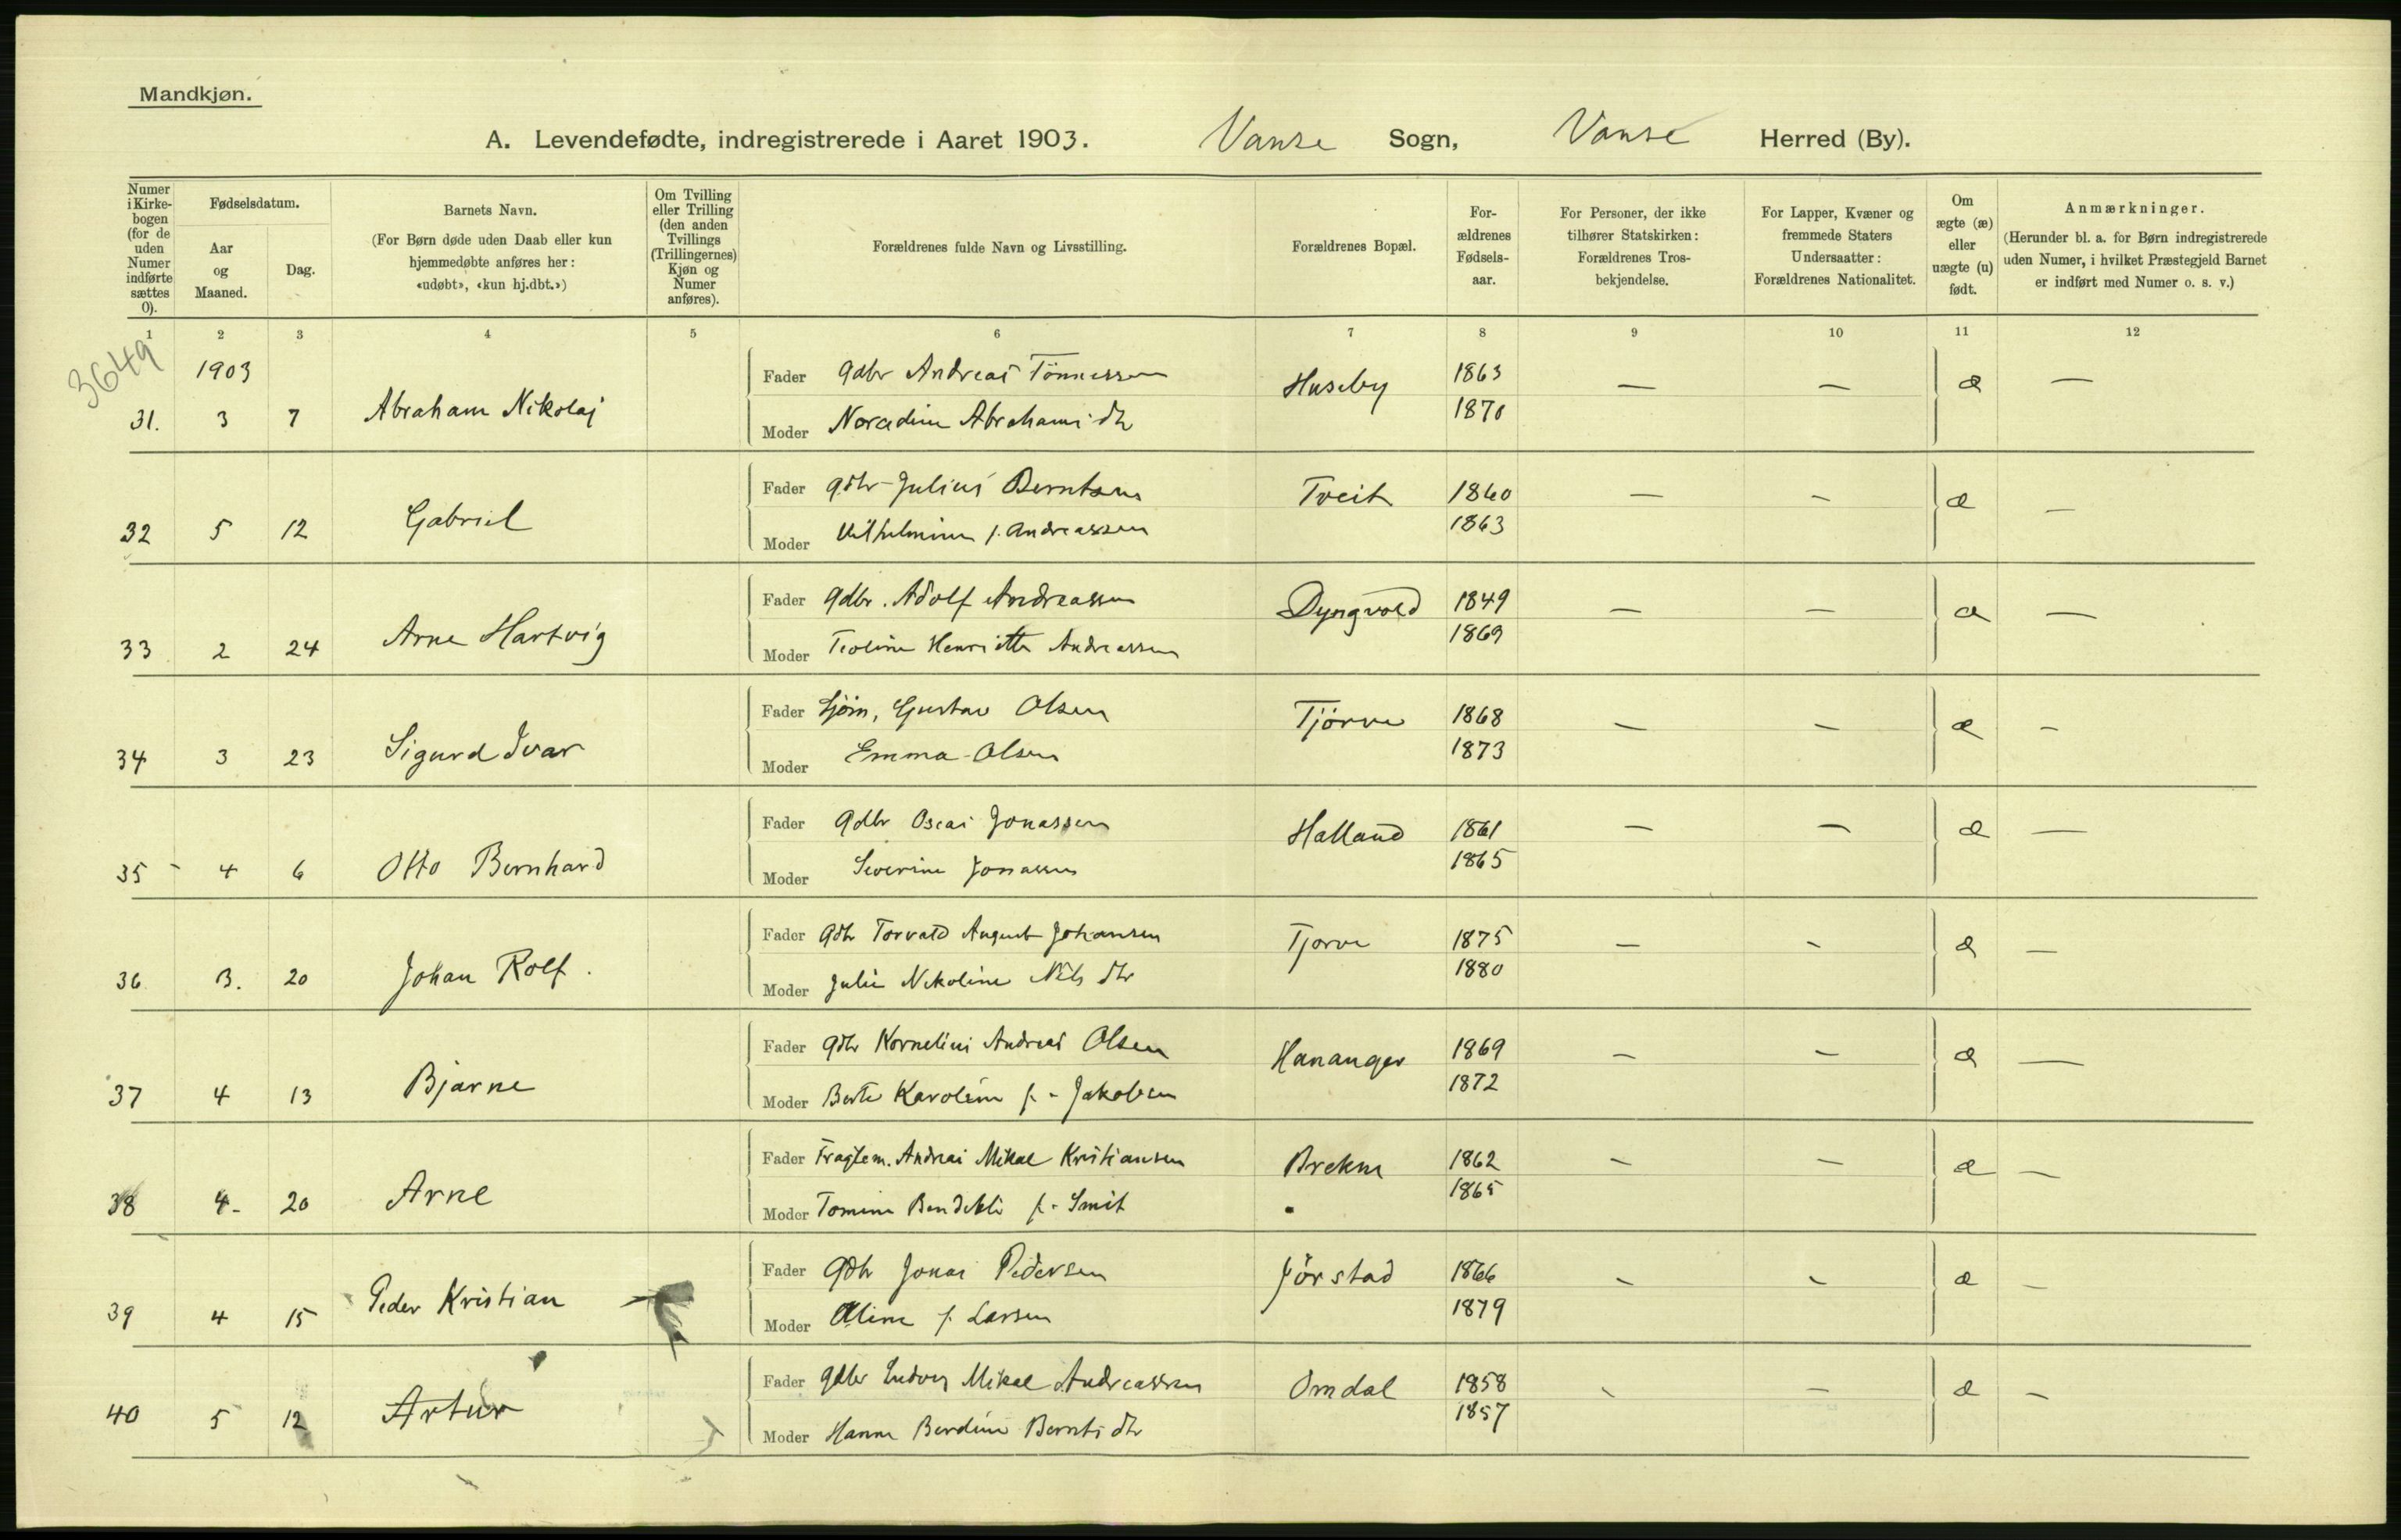 Mandkjøn.
A. Levendefødte, indregistrerede i Aaret 1903. Vanse Sogn, Vanse Herred (By).
Numer i Kirke-bogen (for de uden Numer indførte sættes 0).
Fødselsdatum.
Aar og Maaned.
Dag.
Barnets Navn.
(For Børn døde uden Daab eller kun hjemmedøbte anføres her: «udøbt», «kun hj.dbt.»)
Om Tvilling eller Trilling (den anden Tvillings (Trillingernes) Kjøn og Numer anføres).
Forældrenes fulde Navn og Livsstilling.
Forældrenes Bopæl.
For-ældrenes Fødsels-aar.
For Personer, der ikke tilhører Statskirken: Forældrenes Tros-bekjendelse.
For Lapper, Kvæner og fremmede Staters Undersaatter: Forældrenes Nationalitet.
Om ægte (æ) eller uægte (u) født.
Anmærkninger.
(Herunder bl. a. for Børn indregistrerede uden Numer, i hvilket Præstegjeld Barnet er indført med Numer o. s. v.)
1 2 3 4 5 6 7 8 9 10 11 12
3649
1903
Fader Gdbr Andreas Tönnessen Huseby 1863 — — æ —
31. 3 7 Abraham Nikolaj Moder Noradine Abrahams dtr 1870
Fader gdbr Julius Berntsen Tveit 1860 — — æ —
32 5 12 Gabriel Moder Vilhelmine f. Andreassen 1863
Fader Gdbr. Adolf Andreassen Dyngvold 1849 — — æ —
33 2 24 Arne Hartvig Moder Teoline Henriette Andreassen 1869
Fader Sjöm, Gustav Olsen Tjörve 1868 — — æ —
34 3 23 Sigurd Ivar Moder Emma Olsen 1873
Fader Gdbr Oscar Jonassen Halland 1861 — — æ —
35 4 6 Otto Bernhard Moder Severine Jonassen 1865
Fader Gdbr Torvald August Johansen Tjorve 1875 — — æ —
36 3. 20 Johan Rolf. Moder Julie Nikoline Nils dtr 1880
Fader gdbr Kornelius Andreas Olsen Hananger 1869 — — æ —
37 4 13 Bjarne Moder Berte Karoline f. - Jakobsen 1872
Fader Fragtem. Andreas Mikal Kristiansen Brekne 1862 — — æ —
38 4- 20 Arne Moder Tomine Bendikte f. - Smit 1865
Fader Gdbr Jonas Pedersen Jörstad 1866 — — æ —
39 4 15 Peder Kristian Moder Aline f. Larsen 1879
Fader gdbr Ludvig Mikal Andreassen Omdal 1858 — — æ —
40 5 12 Artur Moder Hanne Berdine Bernts dtr 1857